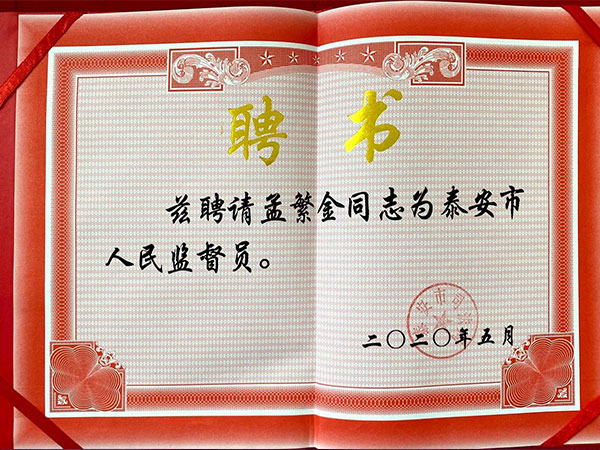 聘书
兹聘请孟繁金同志为泰安市
人民监督员。
泰安市司
二〇二〇年五月